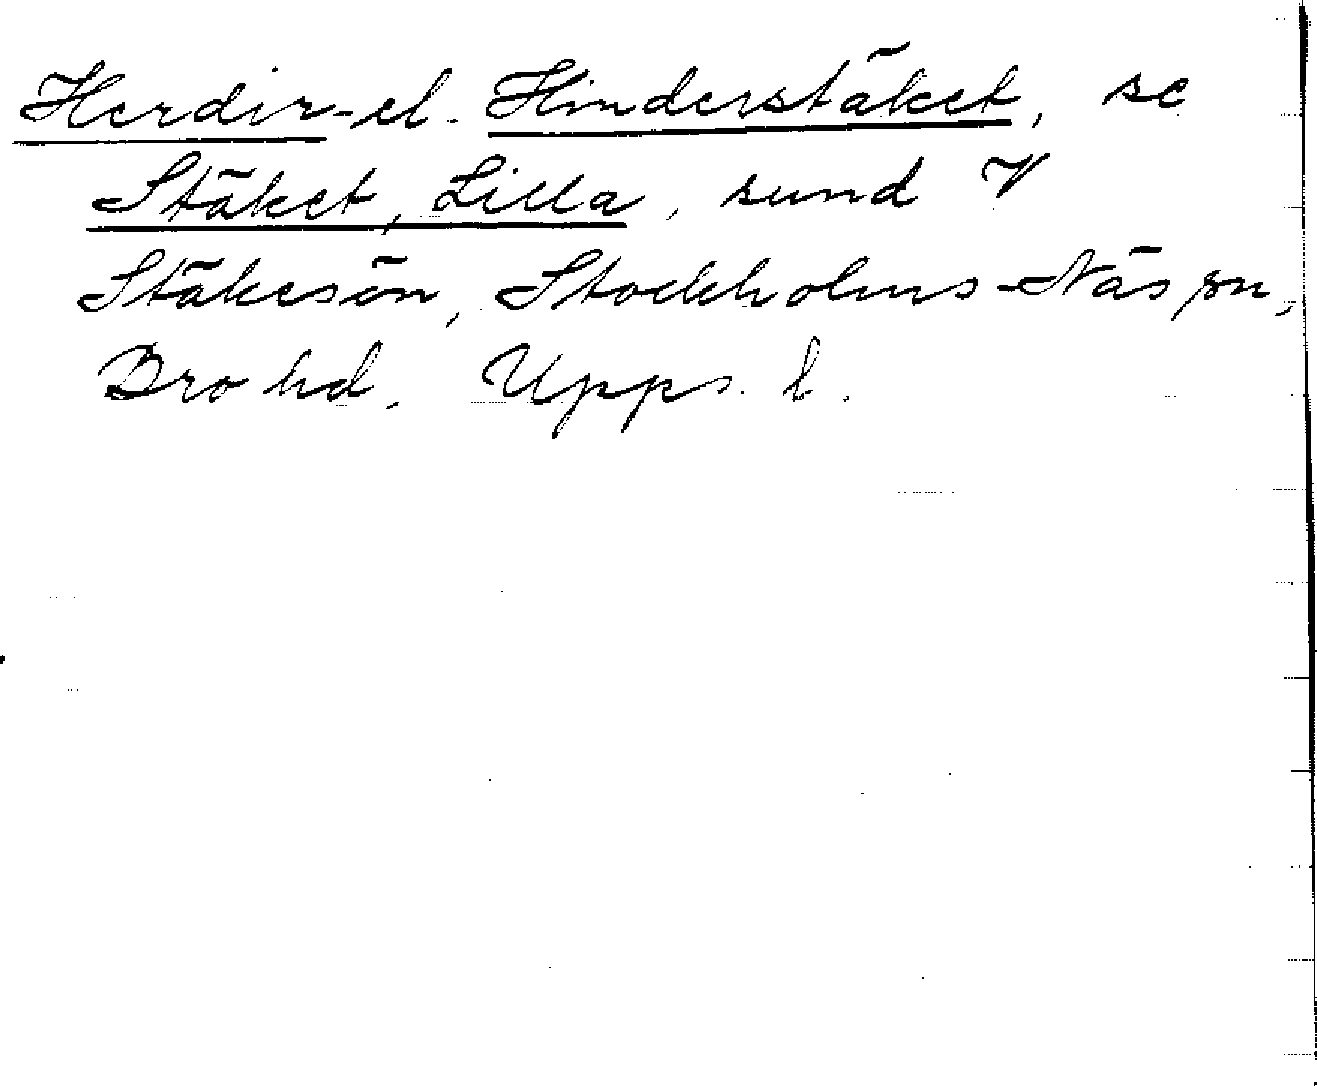 Herdir- el. Hinderstäket, se
Stäket, Lilla, sund V
Stäkesön, Stockholms-Näs sn,
Bro hd. Upps. l.